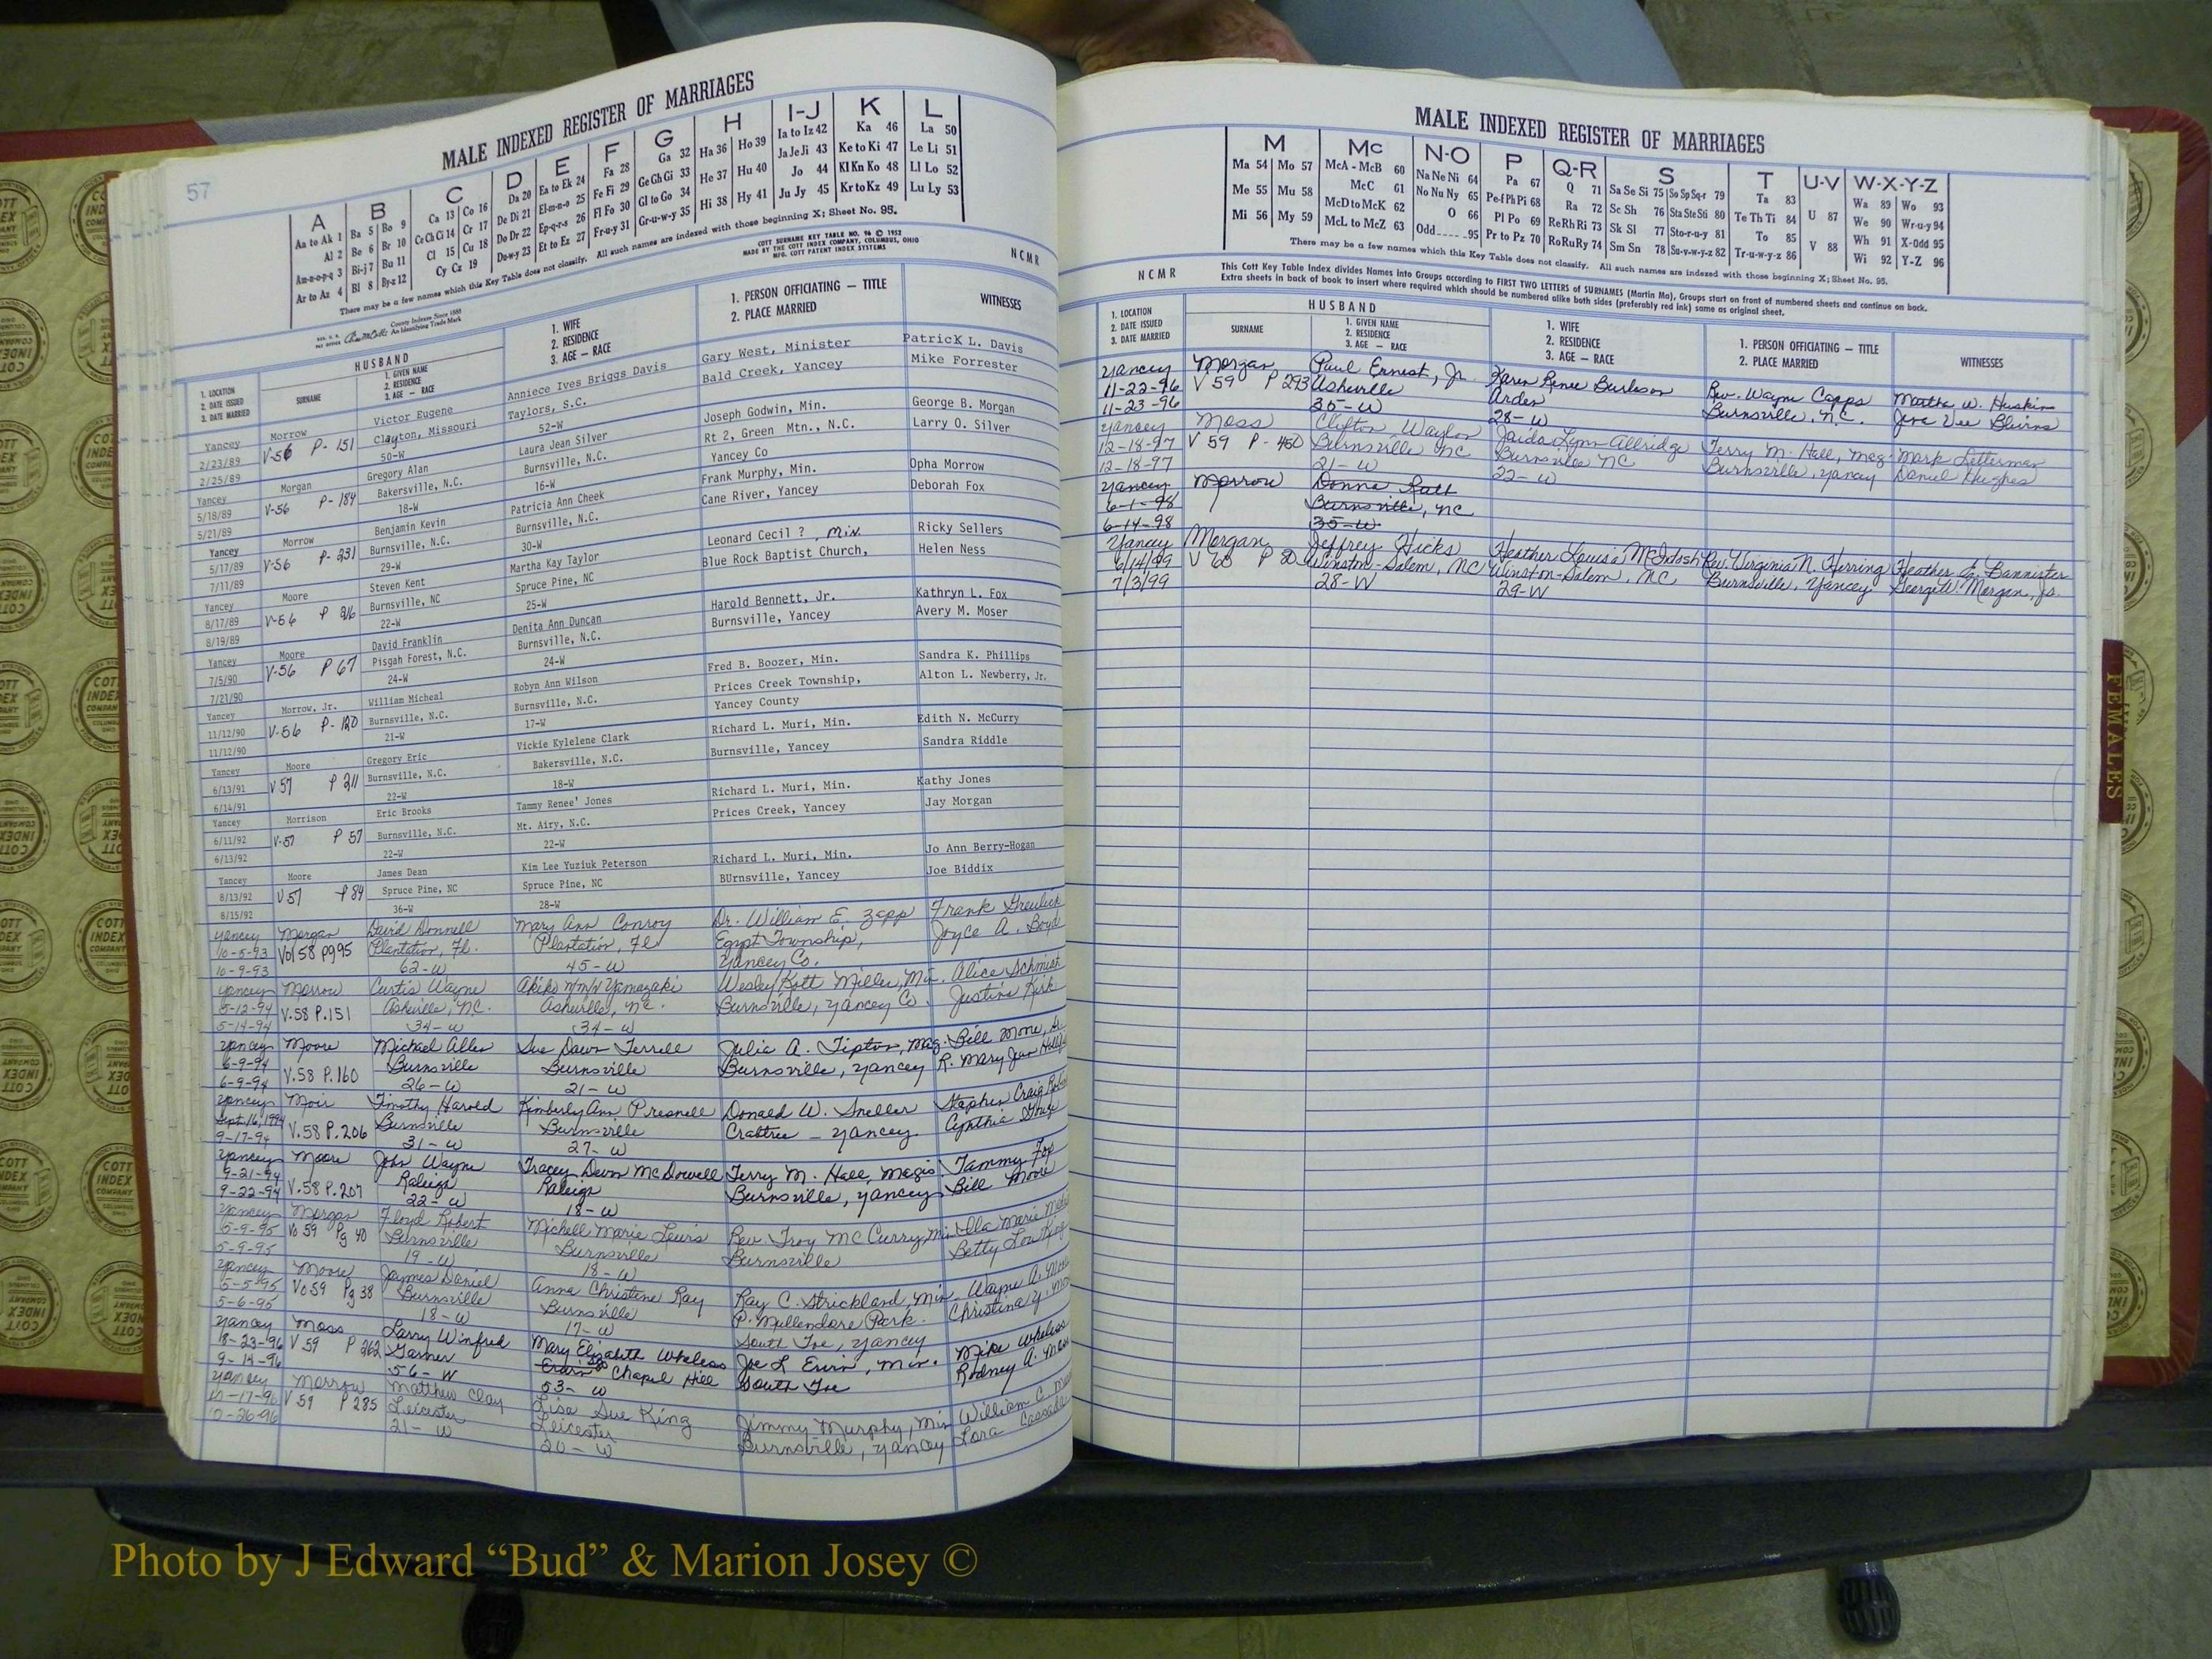 57
MALE INDEXED REGISTER OF MARRIAGES
A B C D E F G H I-J K L
Aa to Ak 1 Ba 5 Bo 9 Ca 13 Co 16 Da 20 Ea to Ek 24 Fa 28 Ga 32 Ha 36 Ho 39 Ia to Iz 42 Ka 46 La 50
Al 2 Be 6 Br 10 Ce Ch Ci 14 Cr 17 De Di 21 El-m-n-o 25 Fe Fi 29 Ge Gh Gi 33 He 37 Hu 40 Ja Je Ji 43 Ke to Ki 47 Le Li 51
Am-n-o-p-q 3 Bi-j 7 Bu 11 Cl 15 Cu 18 Do Dr 22 Ep-q-r-s 26 Fl Fo 30 Gl to Go 34 Hi 38 Hy 41 Jo 44 Kl Kn Ko 48 Ll Lo 52
Ar to Az 4 Bl 8 By-z 12 Cy Cz 19 Du-w-y 23 Et to Ez 27 Fr-u-y 31 Gr-u-w-y 35 Ju Jy 45 Kr to Kz 49 Lu Ly 53
There may be a few names which this Key Table does not classify. All such names are indexed with those beginning X; Sheet No. 95.
COTT SURNAME KEY TABLE NO. 96 © 1952
MADE BY THE COTT INDEX COMPANY, COLUMBUS, OHIO
MFG. COTT PATENT INDEX SYSTEMS
NCMR
County Indexes Since 1888
An Identifying Trade Mark
1. LOCATION
2. DATE ISSUED
3. DATE MARRIED
HUSBAND
SURNAME
1. GIVEN NAME
2. RESIDENCE
3. AGE — RACE
1. WIFE
2. RESIDENCE
3. AGE — RACE
1. PERSON OFFICIATING — TITLE
2. PLACE MARRIED
WITNESSES
Yancey Morrow Victor Eugene Anniece Ives Briggs Davis Gary West, Minister Patrick L. Davis
2/23/89 V-56 P-151 Clayton, Missouri Taylors, S.C. Bald Creek, Yancey Mike Forrester
2/25/89 50-W 52-W
Yancey Morgan Gregory Alan Laura Jean Silver Joseph Godwin, Min. George B. Morgan
5/18/89 V-56 P-184 Bakersville, N.C. Burnsville, N.C. Rt 2, Green Mtn., N.C. Larry O. Silver
5/21/89 18-W 16-W Yancey Co
Yancey Morrow Benjamin Kevin Patricia Ann Cheek Frank Murphy, Min. Opha Morrow
5/17/89 V-56 P-231 Burnsville, N.C. Burnsville, N.C. Cane River, Yancey Deborah Fox
7/11/89 29-W 30-W
Yancey Moore Steven Kent Martha Kay Taylor Leonard Cecil ? , Min. Ricky Sellers
8/17/89 V-56 P Burnsville, NC Spruce Pine, NC Blue Rock Baptist Church, Helen Ness
8/19/89 22-W 25-W
Yancey Moore David Franklin Denita Ann Duncan Harold Bennett, Jr. Kathryn L. Fox
7/5/90 V-56 P 67 Pisgah Forest, N.C. Burnsville, N.C. Burnsville, Yancey Avery M. Moser
7/21/90 24-W 24-W
Yancey Morrow, Jr. William Micheal Robyn Ann Wilson Fred B. Boozer, Min. Sandra K. Phillips
11/12/90 V-56 P-120 Burnsville, N.C. Burnsville, N.C. Prices Creek Township, Alton L. Newberry, Jr.
11/12/90 21-W 17-W Yancey County
Yancey Moore Gregory Eric Vickie Kylelene Clark Richard L. Muri, Min. Edith N. McCurry
6/13/91 V57 P 211 Burnsville, N.C. Bakersville, N.C. Burnsville, Yancey Sandra Riddle
6/14/91 22-W 18-W
Yancey Morrison Eric Brooks Tammy Renee' Jones Richard L. Muri, Min. Kathy Jones
6/11/92 V-57 P 57 Burnsville, N.C. Mt. Airy, N.C. Prices Creek, Yancey Jay Morgan
6/13/92 22-W 22-W
Yancey Moore James Dean Kim Lee Yuziuk Peterson Richard L. Muri, Min. Jo Ann Berry-Hogan
8/13/92 V57 P84 Spruce Pine, NC Spruce Pine, NC BUrnsville, Yancey Joe Biddix
8/15/92 36-W 28-W
Yancey Morgan David Donnell Mary Ann Conroy Dr. William E. Zapp Frank
10-5-93 Vol 58 pg 95 Plantation, Fl. Plantation, Fl Egypt Township, Joyce A. Boyd
10-9-93 62-W 45-W Yancey Co.
Yancey Morrow Curtis Wayne Akiko Yamazaki Wesley Miller, Min. Alice Schmidt
5-12-94 V.58 P.151 Asheville, N.C. Asheville, N.C. Burnsville, Yancey Co. Justine Kirk
5-14-94 34-W 34-W
Yancey Moore Michael Allen Sue Dawn Terrell Julia A. Tipton, Mag. Bill Moore, Sr
6-9-94 V.58 P.160 Burnsville Burnsville Burnsville, Yancey R. Mary Jan
6-9-94 26-W 21-W
Yancey Moir Timothy Harold Kimberly Ann Presnell Donald W. Sneller Stephen Craig
Sept. 16, 1994 V.58 P.206 Burnsville Burnsville Crabtree - Yancey Cynthia
9-17-94 31-W 27-W
Yancey Moore John Wayne Tracey Dawn McDowell Terry M. Hall, Magis. Tammy Fox
9-21-94 V.58 P.207 Raleigh Raleigh Burnsville, Yancey Bill Moore
9-22-94 22-W 18-W
Yancey Morgan Floyd Robert Michell Marie Lewis Rev. Troy McCurry, Min. Ila Marie
5-9-95 Vo 59 Pg 40 Burnsville Burnsville Burnsville Betty Lou King
5-9-95 19-W 18-W
Yancey Moore Jaymes Daniel Anna Christine Ray Ray C. Strickland, Min. Wayne A.
5-5-95 Vo 59 Pg 38 Burnsville Burnsville P. Mullendore Park. Christina Y.
5-6-95 18-W 17-W South Toe, Yancey
Yancey Moss Larry Winfred Mary Elizabeth Wheless Joe L Ervin, Min. Mike Wheless
8-23-96 V 59 P 262 Garner Chapel Hill South Toe Rodney A. Moss
9-14-96 56-W 53-W
Yancey Morrow Matthew Clay Lisa Sue King Jimmy Murphy, Min William C
10-17-96 V 59 P 285 Leicester Leicester Burnsville, Yancey Lora
10-26-96 21-W 20-W
MALE INDEXED REGISTER OF MARRIAGES
M Mc N-O P Q-R S T U-V W-X-Y-Z
Ma 54 Mo 57 McA - McB 60 Na Ne Ni 64 Pa 67 Q 71 Sa Se Si 75 So Sp Sq-r 79 Ta 83 Wa 89 Wo 93
Me 55 Mu 58 McC 61 No Nu Ny 65 Pe-f Ph Pi 68 Ra 72 Sc Sh 76 Sta Ste Sti 80 Te Th Ti 84 U 87 We 90 Wr-u-y 94
Mi 56 My 59 McD to McK 62 O 66 Pl Po 69 Re Rh Ri 73 Sk Sl 77 Sto-r-u-y 81 To 85 Wh 91 X-Odd 95
McL to McZ 63 Odd-----95 Pr to Pz 70 Ro Ru Ry 74 Sm Sn 78 Su-v-w-y-z 82 Tr-u-w-y-z 86 V 88 Wi 92 Y-Z 96
There may be a few names which this Key Table does not classify. All such names are indexed with those beginning X; Sheet No. 95.
NCMR
This Cott Key Table Index divides Names into Groups according to FIRST TWO LETTERS of SURNAMES (Martin Ma), Groups start on front of numbered sheets and continue on back.
Extra sheets in back of book to insert where required which should be numbered alike both sides (preferably red ink) same as original sheet.
1. LOCATION
2. DATE ISSUED
3. DATE MARRIED
HUSBAND
SURNAME
1. GIVEN NAME
2. RESIDENCE
3. AGE — RACE
1. WIFE
2. RESIDENCE
3. AGE — RACE
1. PERSON OFFICIATING — TITLE
2. PLACE MARRIED
WITNESSES
Yancey Morgan Paul Ernest, Jr. Karen Renee Burleson Rev. Wayne Capps Martha W. Huskin
11-22-96 V 59 P 293 Asheville Arden Burnsville, N.C. Blevins
11-23-96 35-W 28-W
Yancey Moss Clifton Waylon Jaida Lynn Allridge Terry M. Hall, Mag. Mark Letterman
12-18-97 V 59 P-450 Burnsville NC Burnsville NC Burnsville, Yancey Daniel Hughes
12-18-97 21-W 22-W
Yancey Morrow Donna
6-1-98 Burnsville, NC
6-14-98 35-W
Yancey Morgan Jeffrey Hicks Heather Louisa McIntosh Rev. Virginia N. Herring Heather Bannister
6/14/99 V 60 P 20 Winston-Salem, NC Winston-Salem, NC Burnsville, Yancey George W. Morgan, Jr.
7/3/99 28-W 29-W
FEMALES
COTT INDEX COMPANY
Photo by J Edward “Bud” & Marion Josey ©